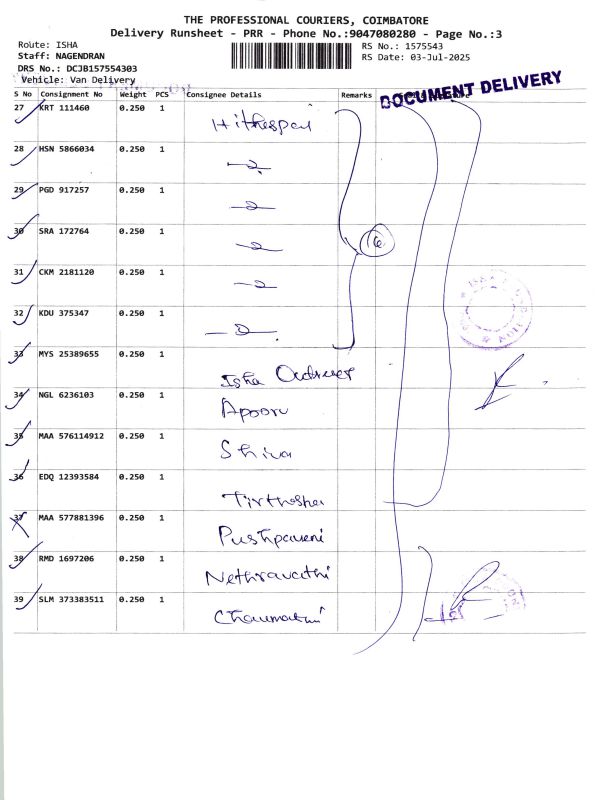 THE PROFESSIONAL COURIERS, COIMBATORE
Delivery Runsheet - PRR - Phone No.:9047080280 - Page No.:3
Route: ISHA
Staff: NAGENDRAN
DRS No.: DCJB157554303
Vehicle: Van Delivery
RS No.: 1575543
RS Date: 03-Jul-2025
DOCUMENT DELIVERY
S No Consignment No Weight PCS Consignee Details Remarks
27 KRT 111460 0.250 1
28 HSN 5866034 0.250 1
29 PGD 917257 0.250 1
30 SRA 172764 0.250 1
31 CKM 2181120 0.250 1
32 KDU 375347 0.250 1
33 MYS 25389655 0.250 1 Isha
34 NGL 6236103 0.250 1 Apooru
35 MAA 576114912 0.250 1 Shiva
36 EDQ 12393584 0.250 1
37 MAA 577881396 0.250 1 Pushpaveni
38 RMD 1697206 0.250 1 Nethravathi
39 SLM 373383511 0.250 1